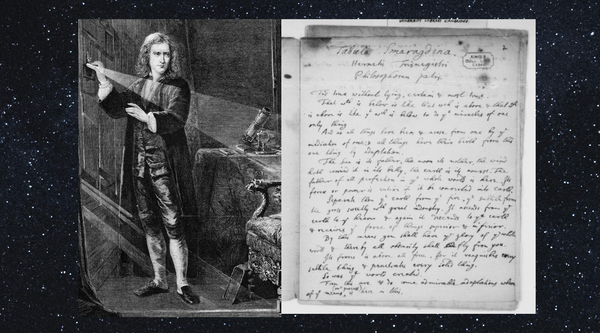 Tabula Smaragdina
Hermetis Trismegistri
Philosophorum patris
Tis true without lying, certain & most true.
That wch is below is like that wch is above & that wch
is above is like yt wch is below to do ye miracles of one
only thing
And as all things have been & arose from one by ye
mediation of one: so all things have their birth from this
one thing by adaptation.
The Sun is its father, the moon its mother, the wind
hath carried it in its belly, the earth is its nourse. The
father of all perfection in ye whole world is here. Its
force or power is entire if it be converted into earth.
Separate thou ye earth from ye fire, ye subtile from
the gross sweetly with great industry. It ascends from ye
earth to ye heaven & again it descends to ye earth
& receives ye force of things superior & inferior.
By this means you shall have ye glory of ye whole
world & thereby all obscurity shall fly from you.
Its force is above all force. for it vanquishes every
subtile thing & penetrates every solid thing.
So was ye world created.
From this are & do come admirable adaptations whereof
ye means is here in this.